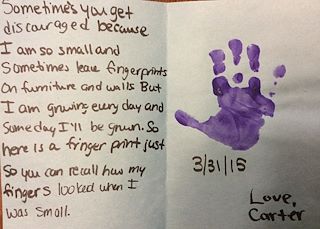 Sometimes you get
discouraged because
I am so small and
Sometimes leave fingerprints
On furniture and walls But
I am growing every day and
Some day I'll be grown. So
here is a finger print just
So you can recall how my
fingers looked when I
was small.
3/31/15
Love,
Carter